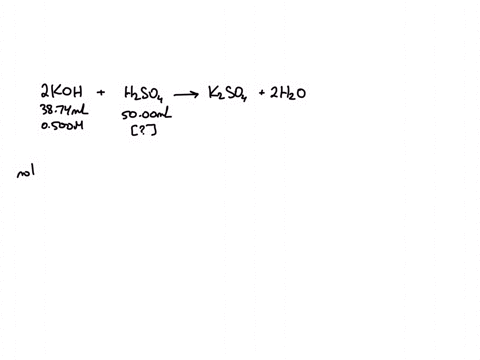 2KOH + H₂SO₄ → K₂SO₄ + 2H₂O
38.74mL 50.00mL
0.500M [?]
mol